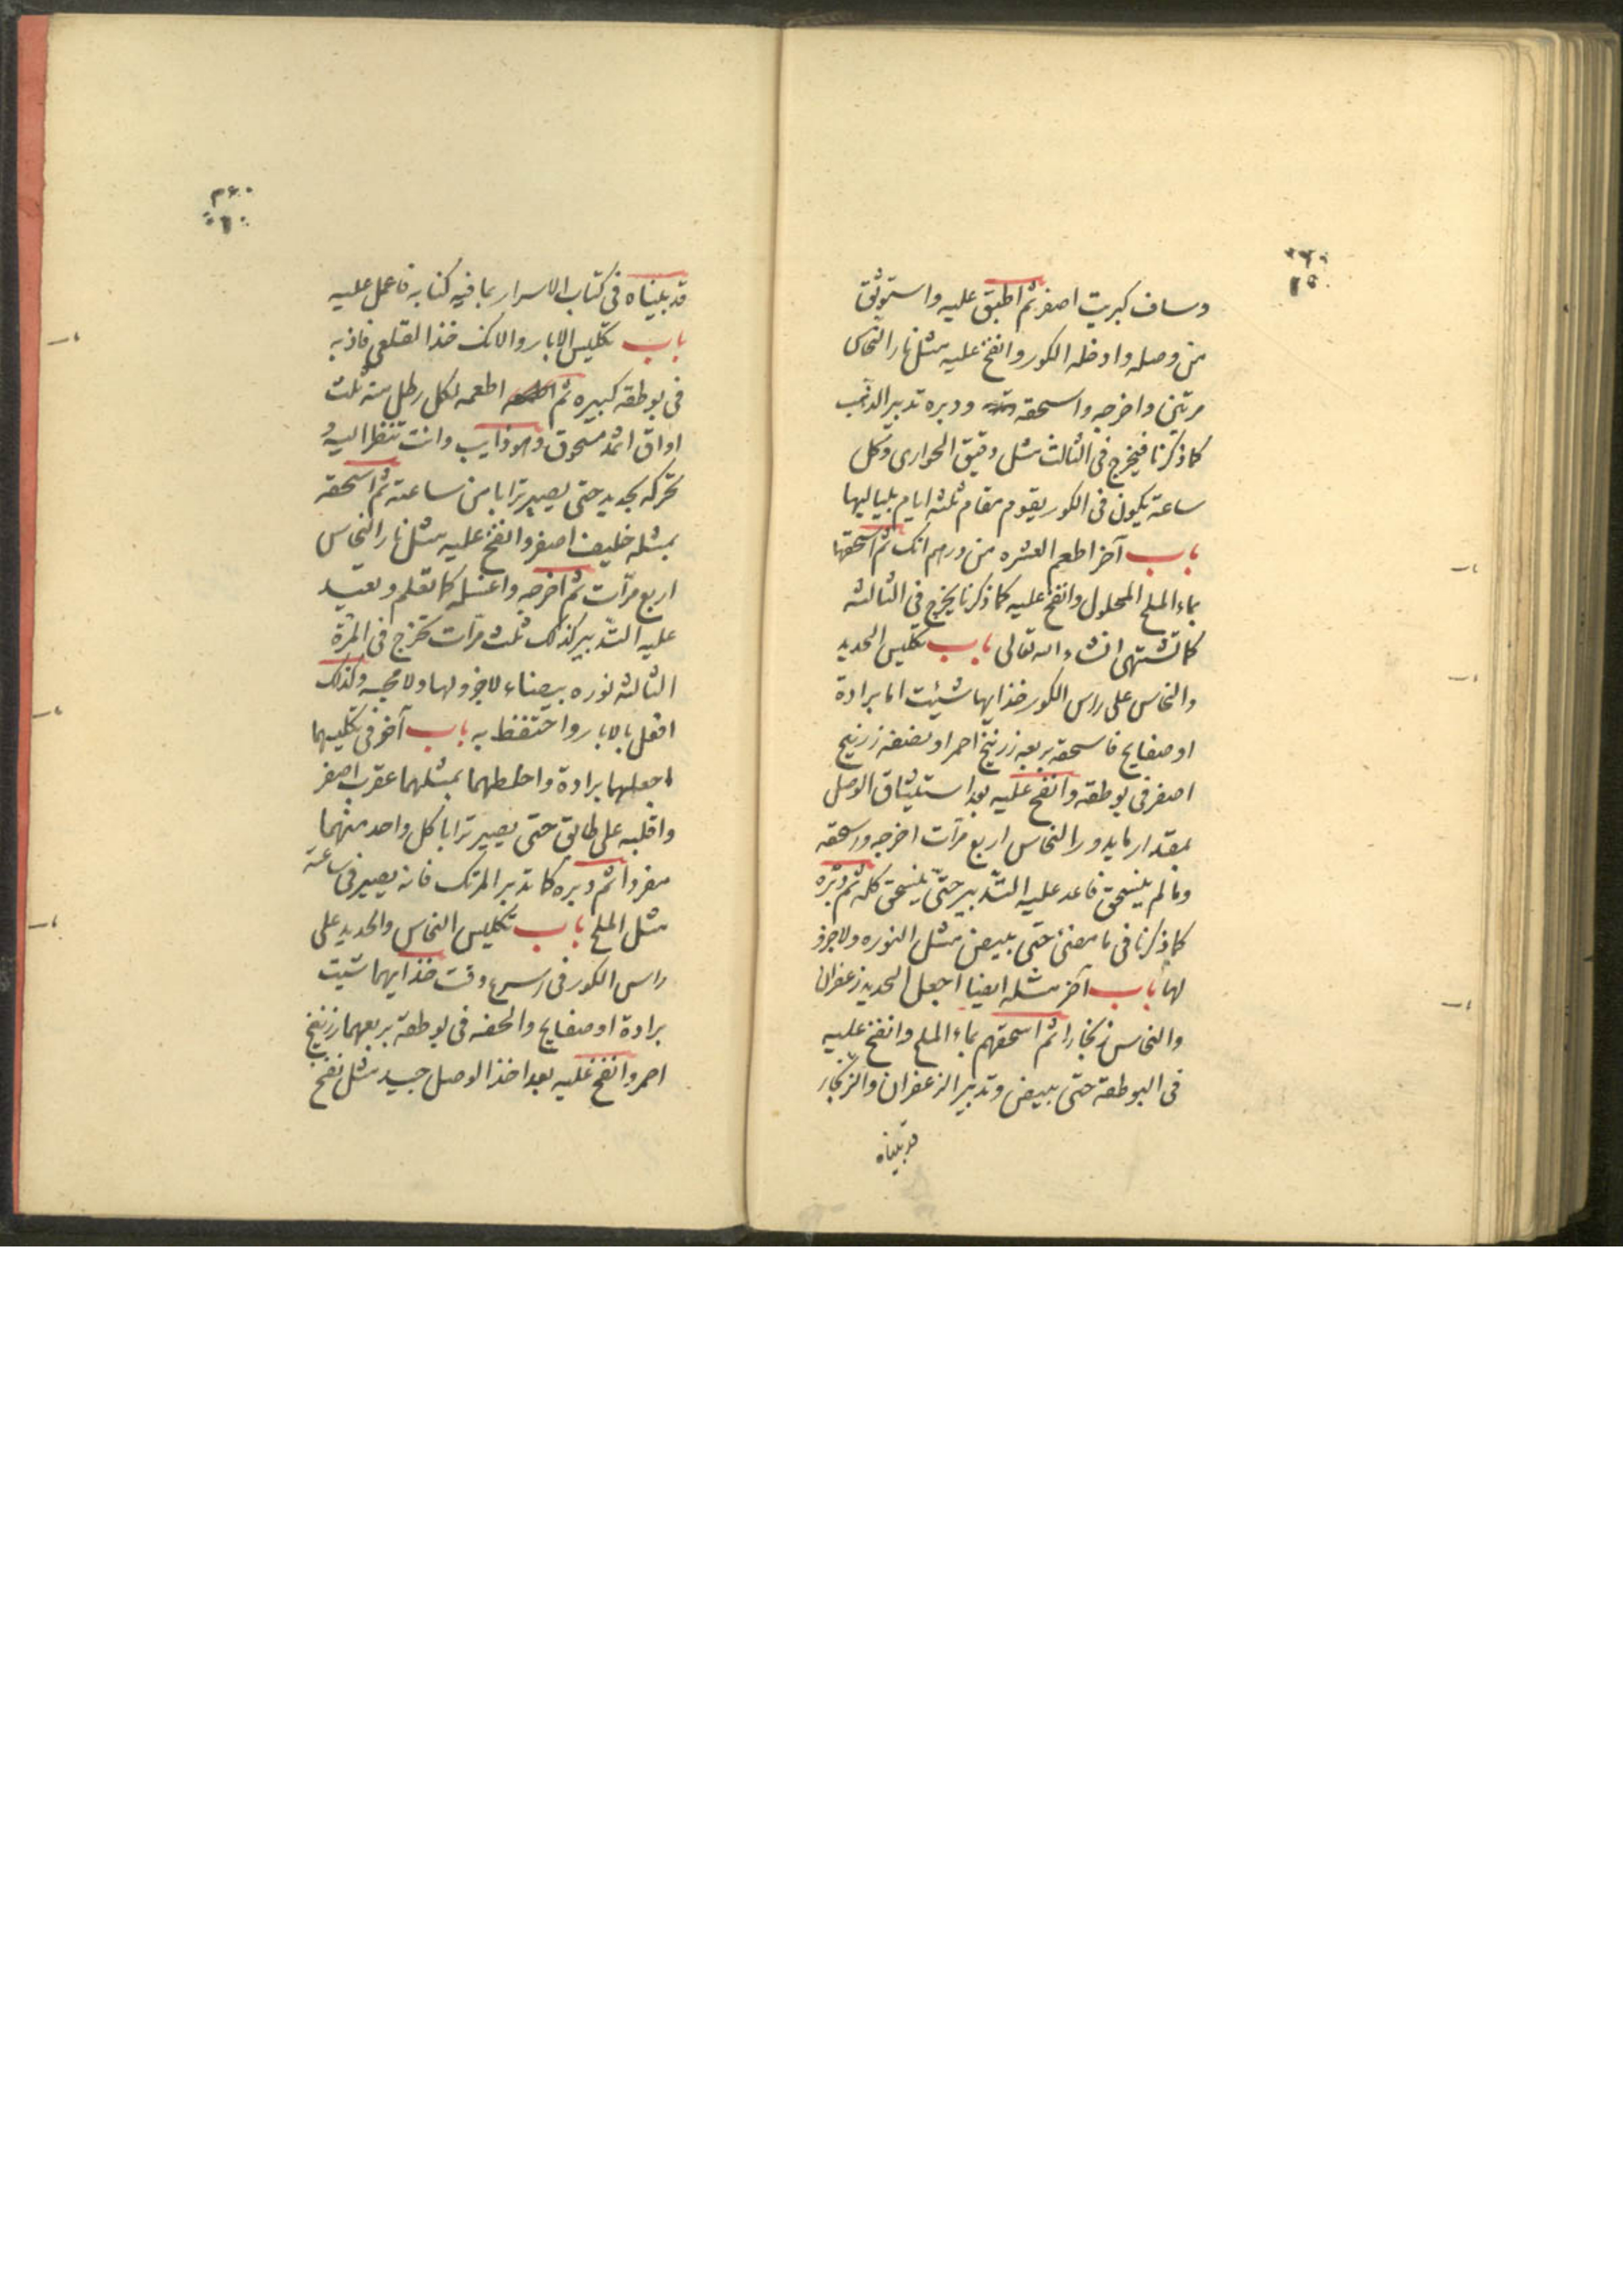 وساف كبريت اصفر ثم اطبق عليه واستوثق
من وصله وادخله الكور وانفخ عليه مثل نار النحاس
مرتين واخرجه واسحقه ودبره تدبير الذهب
كما ذكرنا فيخرج فى الثالث مثل دقيق الحوارى وكل
ساعة يكون فى الكور يقوم مقام ثلثة ايام بلياليها
باب آخر اطعم العشره من درهم انك ثم اسحقها
بماء الملح المحلول وانفخ عليه كما ذكرنا يخرج فى الثالثه
كما تشتهى انشاء الله تعالى باب تكليس الحديد
والنحاس على راس الكور خذ ايها شيئت اما برادة
او صفايح فاسحقه بربعه زرنيخ احمر او نصفه زرنيخ
اصفر فى بوطقه وانفخ عليه بعد استيثاق الوصل
بمقدار ما يدور النحاس اربع مرّات اخرجه واسحقه
وما لم ينسحق فاعد عليه التدبير حتىّ ينسحق كله ثم دبّره
كما ذكرنا فى ما مضى حتى يبيض مثل النوره ولا جرو
لها باب آخر مثله ايضا اجعل الحديد زعفران
والنحاس زنجارا ثم اسحقهم بماء الملح وانفخ عليه
فى البوطقة حتى يبيض وتدبير الزعفران والزنجار
قد بيناه
قد بيناه فى كتاب الاسرار بما فيه كفايه فاعمل عليه
باب تكليس الابار والانك خذ القلعى فاذبه
فى بوطقه كبيره ثم اطعمه لكل رطل منه ثلث
اواق اثمد مسحوق وهو ذايب وانت تنظر اليه و
تحركه بحديد حتى يصير ترابا من ساعته ثم اسحقه
بمثله خليف اصفر وانفخ عليه مثل نار النحاس
اربع مرّات ثم اخرجه واغسله كما تعلم وتعيد
عليه التدبير كذلك ثلث مرّات تخرج فى المرّة
الثالثه نوره بيضاء لا جرو لها ولا مجسه وكذلك
افعل بالابار واحتفظ به باب آخر فى تكليسهما
اجعلهما برادة واخلطهما بمثلهما عقرب اصفر
واقلبه على طابق حتى يصير ترابا كل واحد منهما
مفردا ثم دبره كما تدبر المرتك فانه يصير فى ساعته
مثل الملح باب تكليس النحاس والحديد على
راس الكور فى اسرع وقت خذ ايهما شيت
برادة او صفايح والحفه فى بوطقة بربعهما زرنيخ
احمر وانفخ عليه بعد اخذ الوصل جيد مثل نفخ